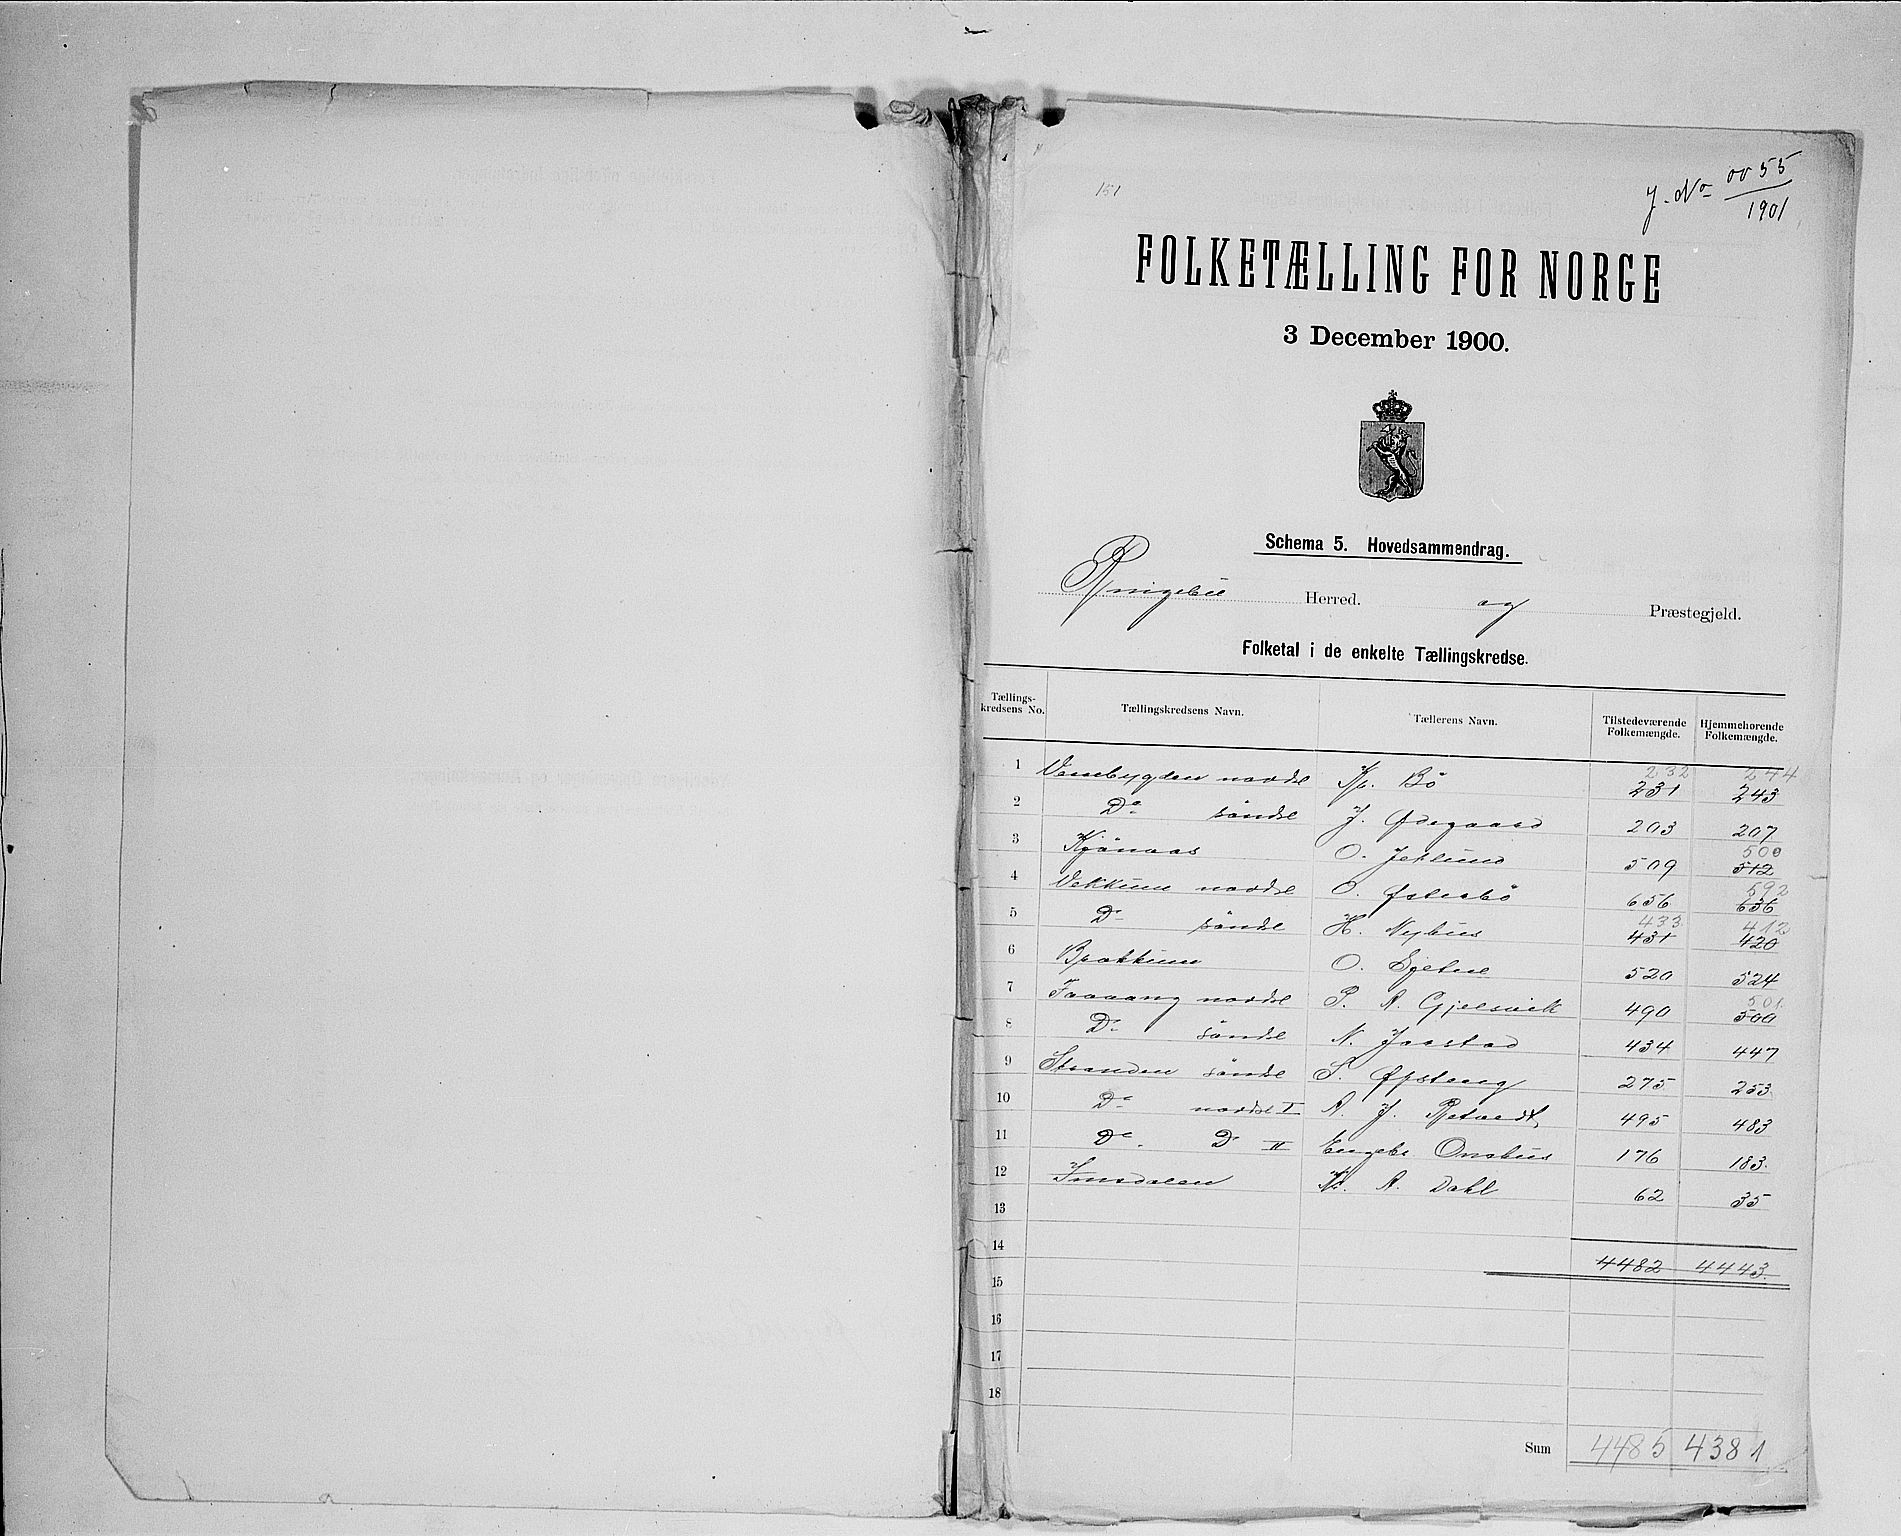 151
J. No 0055
1901
FOLKETÆLLING FOR NORGE
3 December 1900.
Schema 5. Hovedsammendrag.
Ringebu Herred. og Præstegjeld.
Folketal i de enkelte Tællingskredse.
Tællings-kredsens No. Tællingskredsens Navn. Tællerens Navn. Tilstedeværende Folkemængde. Hjemmehørende Folkemængde.
232 244
1 Venebygden nordre Kr. Bö 231 243
2 Do söndre J. Ødegaard 203 207
500
3 Kjönaas O. Jetlund 509 512
592
4 Vekkum nordre O. Østerbö 656 636
433 412
5 Do söndre H. Nyhus 431 420
6 Brækkum O. 520 524
501
7 Faavang nordre P. A. Gjelsvik 490 500
8 Do söndre N. Jaastad 434 447
9 Stranden söndre S. Øfsteng 275 253
10 Do nordre I A. J. 495 483
11 Do. Do II Engebr. Onshus 176 183
12 Imsdalen Kr. A. Dahl 62 35
13
14 4482 4443
15
16
17
18
Sum 4485 4381